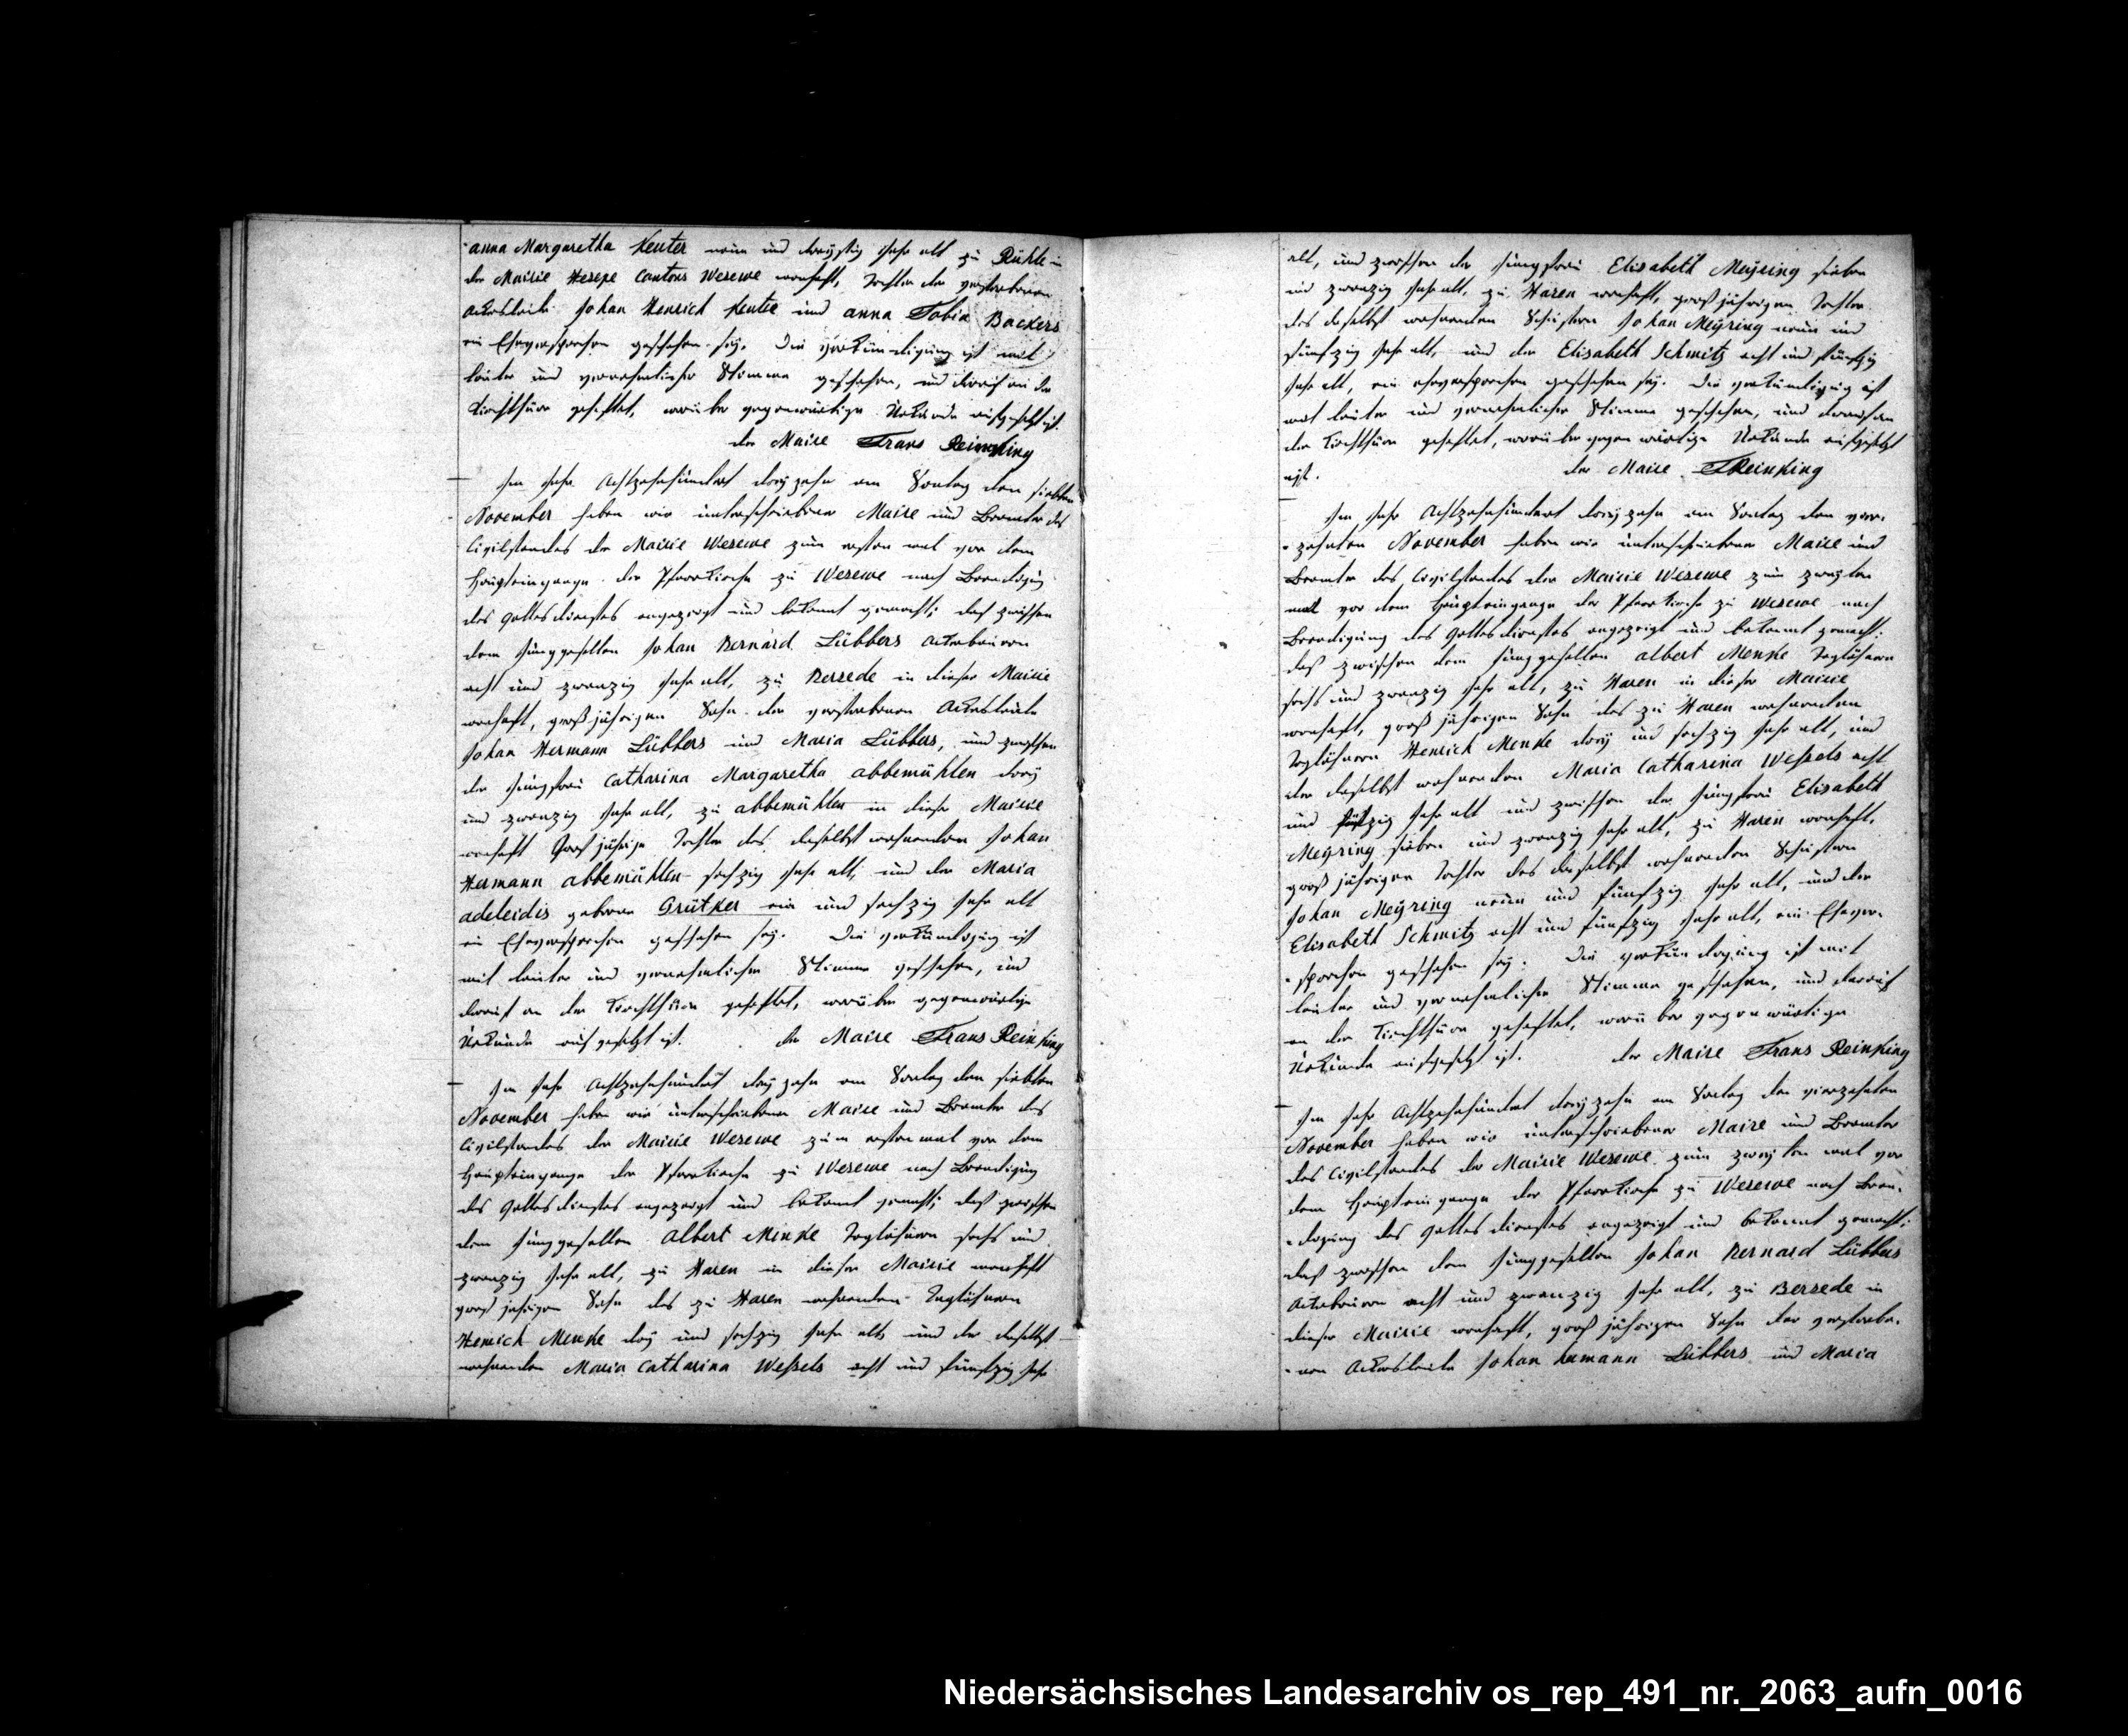 anna Margaretha Keuter neun und dreysig Jahr alt zu Rühle in
der Mairie Hesepe Cantons Wesewe wonhaft, Tochter der verstorbenen
Ackersleute Johan Henrich Keuter und anna Tobia Backers
ein Eheversprechen geschehen sey. Die verkündigung ist mit
lauter und vernehmlicher Stimme geschehen, und darauf an der
Kirchthüre geheftet, worüber gegenwärtige Urkunde aufgesetzt ist.
der Maire Frans Reinking
Im Jahr Achtzehnhundert dreyzehn am Sontag den siebten
November haben wir unterschriebener Maire und Beamter des
Civilstandes der Mairie Wesewe zum ersten mal vor dem
Haupteingange der Pfarrkirche zu Wesewe nach Beendigung
des Gottesdienstes angezeigt und bekannt gemacht; daß zwischen
dem Junggesellen Johan Bernard Lübbers Ackerbauern
acht und zwanzig Jahr alt, zu Bersede in dieser Mairie
wonhaft, großjährigen Sohn der verstorbenen Ackersleute
Johan Hermann Lübbers und Maria Lübbers, und zwischen
der Jungfrau Catharina Margaretha abbemühlen drey
und zwanzig Jahr alt, zu abbemühlen in dieser Mairie
wonhaft Großjährige Tochter des daselbst wohnenden Johan
Hermann abbemühlen sechzig Jahr alt, und der Maria
adeleidis geborne Grütker ein und sechzig Jahr alt
ein Eheversprechen geschehen sey. Die verkündigung ist
mit lauter und vernehmlicher Stimme geschehen, und
darauf an der Kirchthüre geheftet, worüber gegenwärtige
Urkunde aufgesetzt ist. der Maire Frans Reinking
Im Jahr Achtzehnhundert dreyzehn am Sontag den siebten
November haben wir unterschriebener Maire und Beamter des
Civilstandes der Mairie Wesewe zum ersten mal vor dem
Haupteingange der Pfarrkirche zu Wesewe nach Beendigung
des Gottesdienstes angezeigt und bekannt gemacht; daß zwischen
dem Junggesellen Albert Menke Taglöhnern sechs und
zwanzig Jahr alt, zu Haren in dieser Mairie wonhaft
großjährigen Sohn des zu Haren wohnenden Taglöhnern
Henrich Menke drey und sechzig Jahr alt, und der daselbst
wohnenden Maria Catharina Weßels acht und fünfzig Jahr
alt, und zwischen der Jungfrau Elisabeth Meÿring sieben
und zwanzig Jahr alt, zu Haren wonhaft, großjährigen Tochter
des daselbst wohnenden Schustern Johan Meÿring neun und
fünfzig Jahr alt, und der Elisabeth Schmitz acht und fünfzig
Jahr alt, ein eheversprechen geschehen sey. Die verkündigung ist
mit lauter und vernehmlicher Stimme geschehen, und darauf an
der Kirchthüre geheftet, worüber gegenwärtige Urkunde aufgesetzt
ist. der Maire F Reinking
Im Jahr Achtzehnhundert dreyzehn am Sontag den vier-
-zehnten November haben wir unterschriebener Maire und
Beamter des Civilstandes der Mairie Wesewe zum zweyten
mal vor dem Haupteingange der Pfarrkirche zu Wesewe nach
Beendigung des Gottesdienstes angezeigt und bekannt gemacht:
daß zwischen dem Junggesellen albert Menke Taglöhnern
sechs und zwanzig Jahr alt, zu Haren in dieser Mairie
wonhaft, großjährigen Sohn des zu Haren wohnenden
Taglöhnern Henrich Menke drey und sechzig Jahr alt, und
der daselbst wohnenden Maria Catharina Weßels acht
und fünfzig Jahr alt und zwischen der Jungfrau Elisabeth
Meÿring sieben und zwanzig Jahr alt, zu Haren wonhaft,
großjährigen Tochter des daselbst wohnenden Schustern
Johan Meÿring neun und fünfzig Jahr alt, und der
Elisabeth Schmitz acht und fünfzig Jahr alt, ein Ehever-
-sprechen geschehen sey. Die verkündigung ist mit
lauter und vernehmlicher Stimme geschehen, und darauf
an der Kirchthüre geheftet, worüber gegenwärtige
Urkunde aufgesetzt ist. der Maire Frans Reinking
Im Jahr Achtzehnhundert dreyzehn am Sontag den vierzehnten
November haben wir unterschriebener Maire und Beamter
des Civilstandes der Mairie Wesewe zum zweyten mal vor
dem Haupteingange der Pfarrkirche zu Wesewe nach Been-
-digung des Gottesdienstes angezeigt und bekannt gemacht:
daß zwischen dem Junggesellen Johan Bernard Lübbers
Ackerbauern acht und zwanzig Jahr alt, zu Bersede in
dieser Mairie wonhaft, großjährigen Sohn der verstorbe-
-nen Ackersleute Johan hermann Lübbers und Maria
Niedersächsisches Landesarchiv os_rep_491_nr._2063_aufn_0016